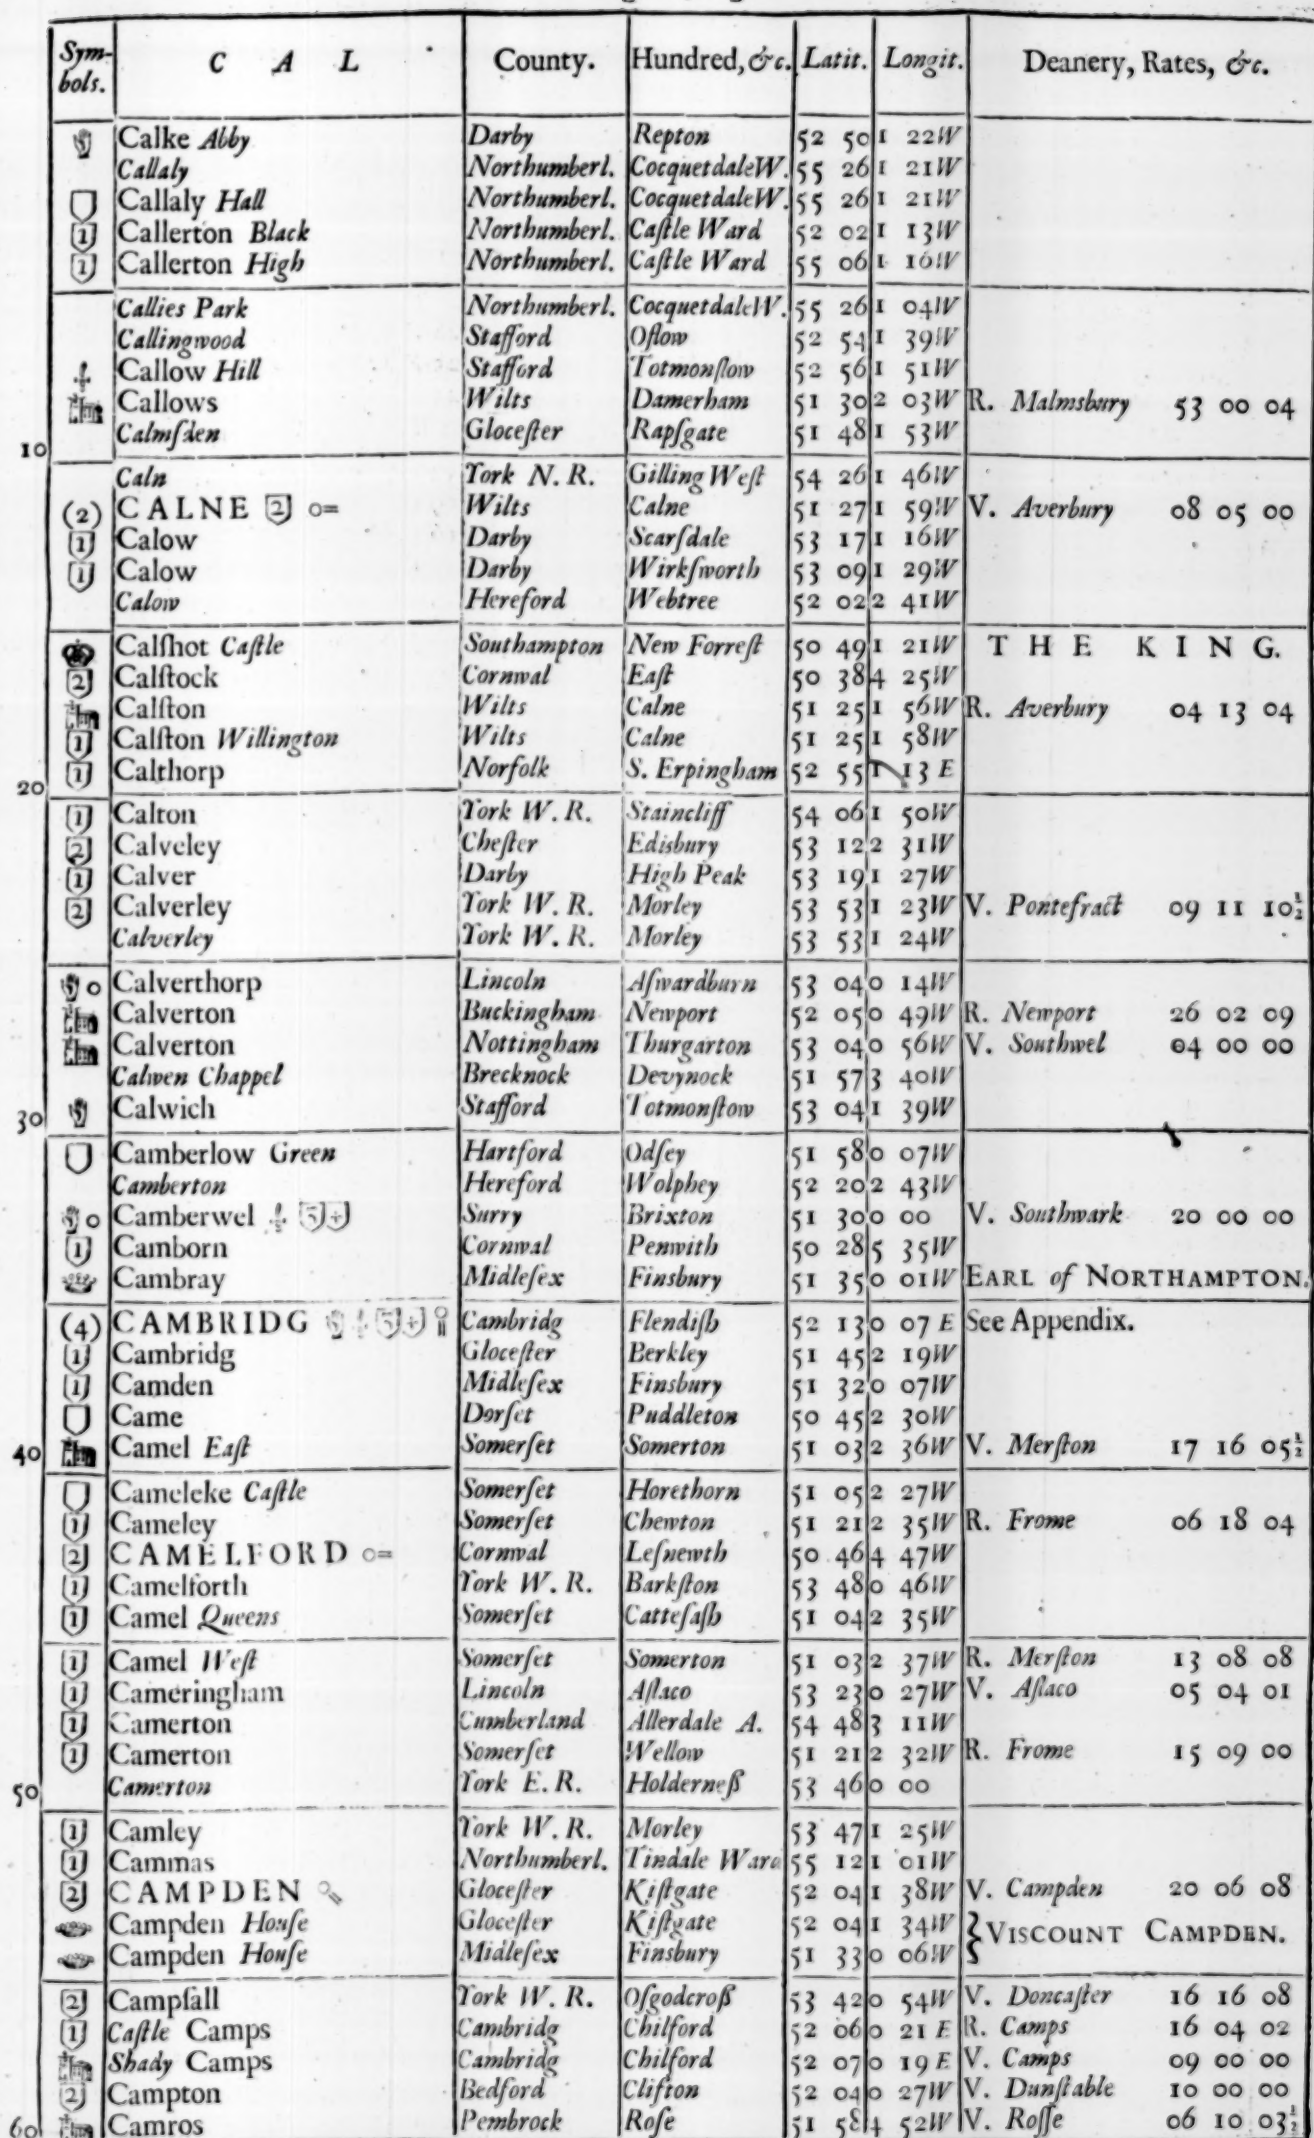 Symbols. C A L County. Hundred, &c. Latit. Longit. Deanery, Rates, &c.
Calke Abby Darby Repton 52 50 1 22W
Callaly Northumberl. CocquetdaleW. 55 26 1 21W
Callaly Hall Northumberl. CocquetdaleW. 55 26 1 21W
1 Callerton Black Northumberl. Caſtle Ward 52 02 1 13W
1 Callerton High Northumberl. Caſtle Ward 55 06 1 16W
Callies Park Northumberl. CocquetdaleW. 55 26 1 04W
Callingwood Stafford Oflow 52 54 1 39W
Callow Hill Stafford Totmonſlow 52 56 1 51W
Callows Wilts Damerham 51 30 2 03W R. Malmsbury 53 00 04
10 Calmſden Gloceſter Rapſgate 51 48 1 53W
Caln York N. R. Gilling Weſt 54 26 1 46W
(2) CALNE 2 o= Wilts Calne 51 27 1 59W V. Averbury 08 05 00
1 Calow Darby Scarſdale 53 17 1 16W
1 Calow Darby Wirkſworth 53 09 1 29W
Calow Hereford Webtree 52 02 2 41W
Calſhot Caſtle Southampton New Forreſt 50 49 1 21W THE KING.
2 Calſtock Cornwal Eaſt 50 38 4 25W
Calſton Wilts Calne 51 25 1 56W R. Averbury 04 13 04
1 Calſton Willington Wilts Calne 51 25 1 58W
20 1 Calthorp Norfolk S. Erpingham 52 55 1 13 E
1 Calton York W. R. Staincliff 54 06 1 50W
2 Calveley Cheſter Edisbury 53 12 2 31W
1 Calver Darby High Peak 53 19 1 27W
2 Calverley York W. R. Morley 53 53 1 23W V. Pontefract 09 11 10½
Calverley York W. R. Morley 53 53 1 24W
o Calverthorp Lincoln Aſwardburn 53 04 0 14W
Calverton Buckingham Newport 52 05 0 49W R. Newport 26 02 09
Calverton Nottingham Thurgarton 53 04 0 56W V. Southwel 04 00 00
Calwen Chappel Brecknock Devynock 51 57 3 40W
30 Calwich Stafford Totmonſtow 53 04 1 39W
Camberlow Green Hartford Odſey 51 58 0 07W
Camberton Hereford Wolphey 52 20 2 43W
o Camberwel 5 + Surry Brixton 51 30 0 00 V. Southwark 20 00 00
1 Camborn Cornwal Penwith 50 28 5 35W
Cambray Midleſex Finsbury 51 35 0 01W EARL of NORTHAMPTON.
(4) CAMBRIDG 5 + Cambridg Flendiſh 52 13 0 07 E See Appendix.
1 Cambridg Gloceſter Berkley 51 45 2 19W
1 Camden Midleſex Finsbury 51 32 0 07W
Came Dorſet Puddleton 50 45 2 30W
40 Camel Eaſt Somerſet Somerton 51 03 2 36W V. Merſton 17 16 05½
Cameleke Caſtle Somerſet Horethorn 51 05 2 27W
1 Cameley Somerſet Chewton 51 21 2 35W R. Frome 06 18 04
2 CAMELFORD o= Cornwal Leſnewth 50 46 4 47W
1 Camelforth York W. R. Barkſton 53 48 0 46W
1 Camel Queens Somerſet Catteſaſh 51 04 2 35W
1 Camel Weſt Somerſet Somerton 51 03 2 37W R. Merſton 13 08 08
1 Cameringham Lincoln Aſlaco 53 23 0 27W V. Aſlaco 05 04 01
1 Camerton Cumberland Allerdale A. 54 48 3 11W
1 Camerton Somerſet Wellow 51 21 2 32W R. Frome 15 09 00
50 Camerton York E. R. Holderneß 53 46 0 00
1 Camley York W. R. Morley 53 47 1 25W
1 Cammas Northumberl. Tindale Ward 55 12 1 01W
2 CAMPDEN Gloceſter Kiſtgate 52 04 1 38W V. Campden 20 06 08
Campden Houſe Gloceſter Kiſtgate 52 04 1 34W } VISCOUNT CAMPDEN.
Campden Houſe Midleſex Finsbury 51 33 0 06W
2 Campſall York W. R. Oſgodcroß 53 42 0 54W V. Doncaſter 16 16 08
1 Caſtle Camps Cambridg Chilford 52 06 0 21 E R. Camps 16 04 02
Shady Camps Cambridg Chilford 52 07 0 19 E V. Camps 09 00 00
2 Campton Bedford Clifton 52 04 0 27W V. Dunſtable 10 00 00
60 Camros Pembrock Roſe 51 58 4 52W V. Roſſe 06 10 03½